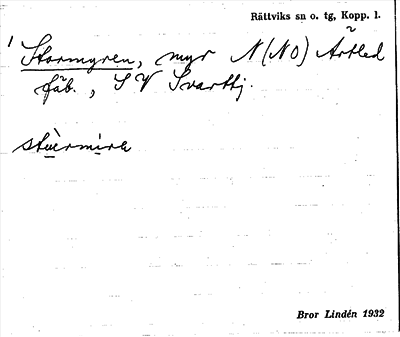 Rättviks sn o. tg, Kopp. l.
1 Stormyren, myr N(NO) Ärtled
fäb., SV Svarttj.
stùermira
Bror Lindén 1932